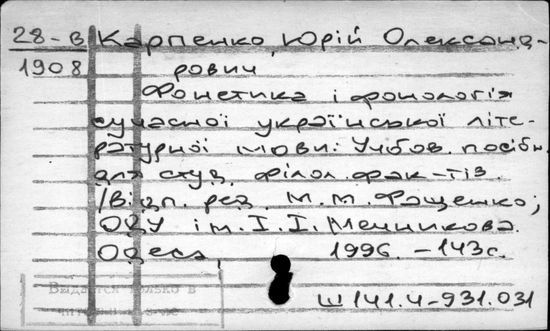 28-В Карпенко, Юрій Олександ-
1908 рович
Фонетика і фонологія
сучасної української літе-
ратурної мови: Учбов. посібн.
для студ. філол. фак-тів.
/Відп. ред. М.М. Фащенко;
ОДУ ім. І.І. Мечникова.
Одеса, 1996. -143с.
Выдается только в
читальн
Ш141.4-931.031